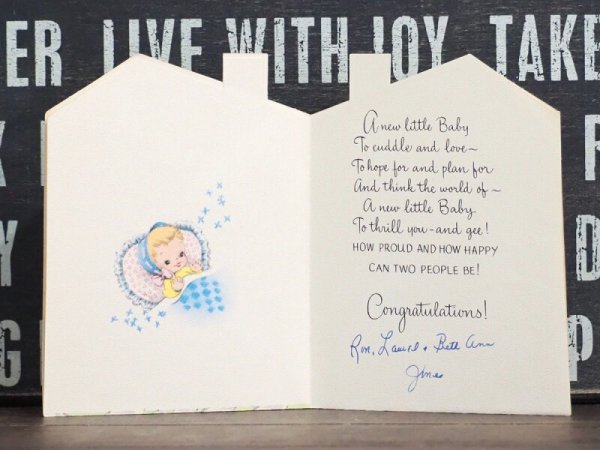 ER LIVE WITH JOY TAKE
A new little Baby
To cuddle and love~
To hope for and plan for
And think the world of~
A new little Baby
To thrill you-and gee!
HOW PROUD AND HOW HAPPY
CAN TWO PEOPLE BE!
Congratulations!
Ron, Laurel + Beth Ann
Jones